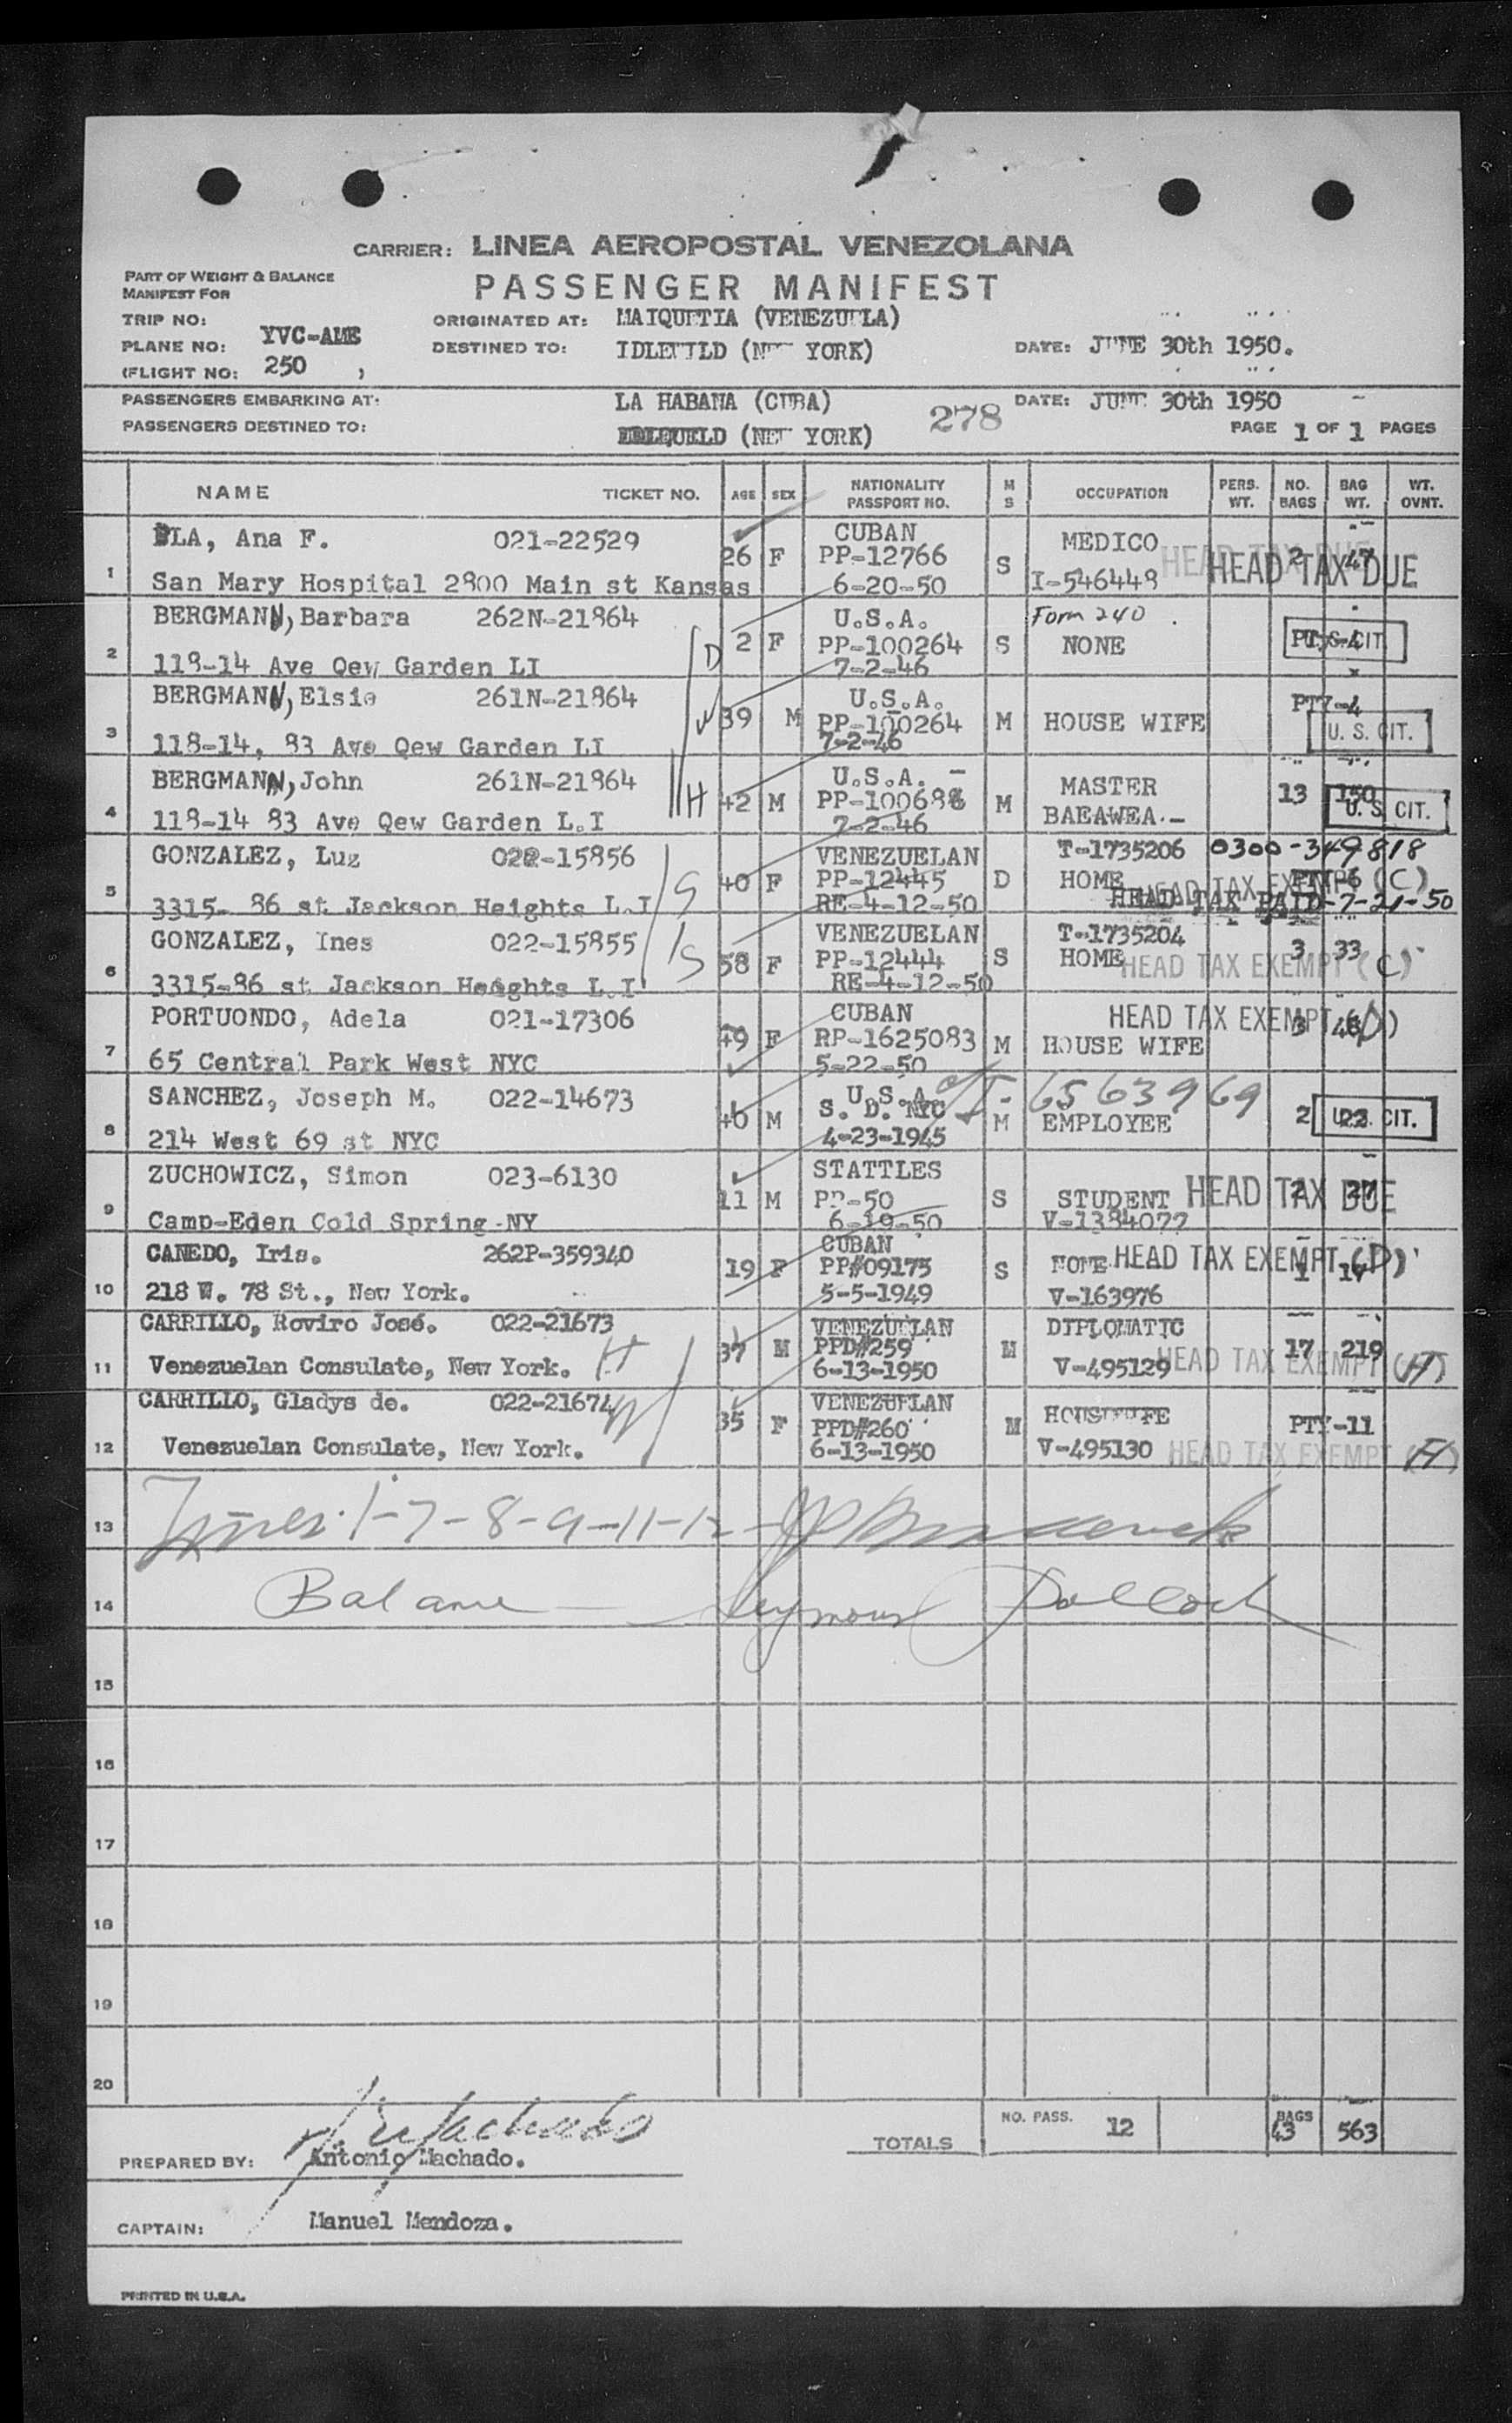 CARRIER: LINEA AEROPOSTAL VENEZOLANA
PART OF WEIGHT & BALANCE
MANIFEST FOR
PASSENGER MANIFEST
TRIP NO:
ORIGINATED AT: MAIQUETIA (VENEZUELA)
PLANE NO: YVC-AME
DESTINED TO: IDLEWILD (NEW YORK) DATE: JUNE 30th 1950.
(FLIGHT NO: 250 )
PASSENGERS EMBARKING AT: LA HABANA (CUBA) 278 DATE: JUNE 30th 1950
PASSENGERS DESTINED TO: (NEW YORK) PAGE 1 OF 1 PAGES
NAME TICKET NO. AGE SEX NATIONALITY PASSPORT NO. M S OCCUPATION PERS. WT. NO. BAGS BAG WT. WT. OVNT.
PLA, Ana F. 021-22529 CUBAN MEDICO
1 26 F PP-12766 S 2 47 HEAD TAX DUE
San Mary Hospital 2800 Main st Kansas 6-20-50 I-546448
BERGMANN, Barbara 262N-21864 U.S.A. Form 240
2 D 2 F PP-100264 S NONE PTY-4 U.S. CIT.
118-14 Ave Qew Garden LI 7-2-46
BERGMANN, Elsie 261N-21864 U.S.A. PTY-4
3 W 39 M PP-100264 M HOUSE WIFE U. S. CIT.
118-14, 83 Ave Qew Garden LI 7-2-46
BERGMANN, John 261N-21864 U.S.A. MASTER 13 150
4 H 42 M PP-100688 M BAEAWEA.- U.S. CIT.
118-14 83 Ave Qew Garden L.I 7-2-46
GONZALEZ, Luz 022-15856 VENEZUELAN T-1735206 0300-349818
5 G 40 F PP-12445 D HOME PTY-6 HEAD TAX EXEMPT (C)
3315- 86 st Jackson Heights L.I RE-4-12-50 HEAD TAX PAID-7-21-50
GONZALEZ, Ines 022-15855 VENEZUELAN T-1735204
6 S 58 F PP-12444 S HOME 3 33 HEAD TAX EXEMPT (C)
3315-86 st Jackson Heights L.I RE-4-12-50
PORTUONDO, Adela 021-17306 CUBAN HEAD TAX EXEMPT (D)
7 49 F RP-1625083 M HOUSE WIFE 3
65 Central Park West NYC 5-22-50
SANCHEZ, Joseph M. 022-14673 U.S.A. 6563969
8 40 M S. D. NYC M EMPLOYEE 2 22 U.S. CIT.
214 West 69 st NYC 4-23-1945
ZUCHOWICZ, Simon 023-6130 STATTLES
9 11 M PP-50 S STUDENT 2 27 HEAD TAX DUE
Camp-Eden Cold Spring-NY 6-19-50 V-1384077
CANEDO, Iris. 262P-359340 CUBAN
10 19 F PP#09175 S NONE 1 17 HEAD TAX EXEMPT (D)
218 W. 78 St., New York. 5-5-1949 V-163976
CARRILLO, Roviro José. 022-21673 VENEZUELAN DIPLOMATIC
11 H 37 M PPD#259 M 17 219
Venezuelan Consulate, New York. 6-13-1950 V-495129 HEAD TAX EXEMPT (H)
CARRILLO, Gladys de. 022-21674 VENEZUELAN HOUSEWIFE
12 W 35 F PPD#260 M PTY-11
Venezuelan Consulate, New York. 6-13-1950 V-495130 HEAD TAX EXEMPT (H)
13 Lines 1-7-8-9-11-12-
14 Balance — Seymour Pollock
15
16
17
18
19
20
TOTALS NO. PASS. 12 BAGS 43 563
PREPARED BY: Antonio Machado.
CAPTAIN: Manuel Mendoza.
PRINTED IN U.S.A.